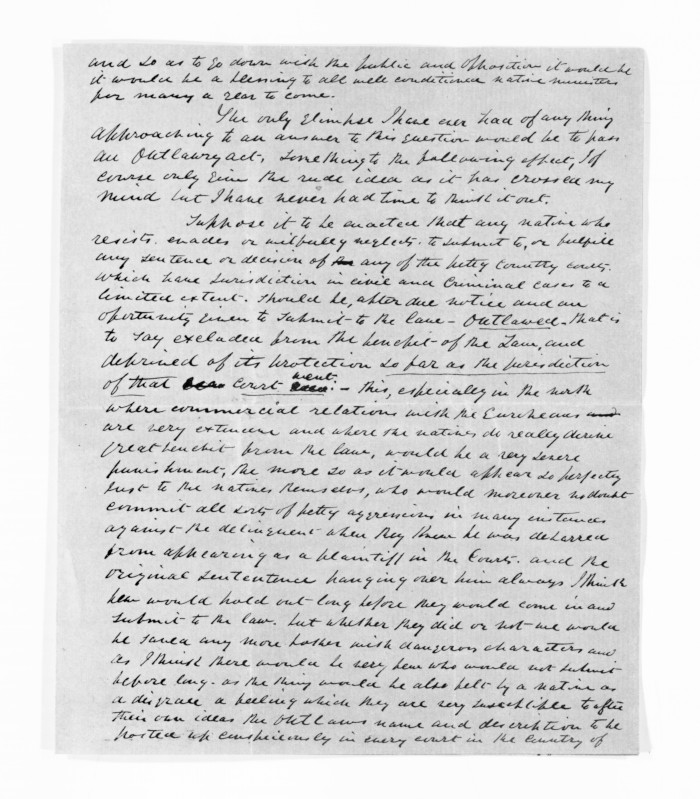 and so as to go down with the public and opposition it would be
it would be a blessing to all well conditioned native ministers
for many a year to come.
The only Glimpse I have ever had of any thing
approaching to an answer to this question would be to pass
an Outlawry act, something to the following effect, I of
course only Give the rude idea as it has crossed my
mind but I have never had time to think it out.
Suppose it to be enacted that any native who
resists. evades or wilfully neglects. to submit to, or fulfill
any sentence or decision of any of the petty Country courts
which have Jurisdiction in civil and Criminal cases to a
limited extent. Should be, after due notice and an
oportunity Given to submit to the law - Outlawed. that is
to say excluded from the benefit of the Law, and
deprived of its protection so far as the jurisdiction
of that Court went. - this, especially in the north
where commercial relations with the Europeans and
are very extensive and where the natives do really derive
great benefit from the law, would be a very severe
punishment, the more so as it would appear so perfectly
Just to the natives themselvs, who would moreover no doubt
commit all sorts of petty aggressions in many instances
against the delinquent when they knew he was debarred
from appearing as a plaintiff in the Courts. and the
original sententence hanging over him always I think
few would hold out long before they would come in and
submit to the law. but whether they did or not we would
be saved any more bother with dangerous characters and
as I think there would be very few who would not submit
before long. as the thing would be also felt by a native as
a disgrace a feeling which they are very susceptible to after
their own ideas the outlaws name and description to be
posted up conspiciously in every court in the Country of